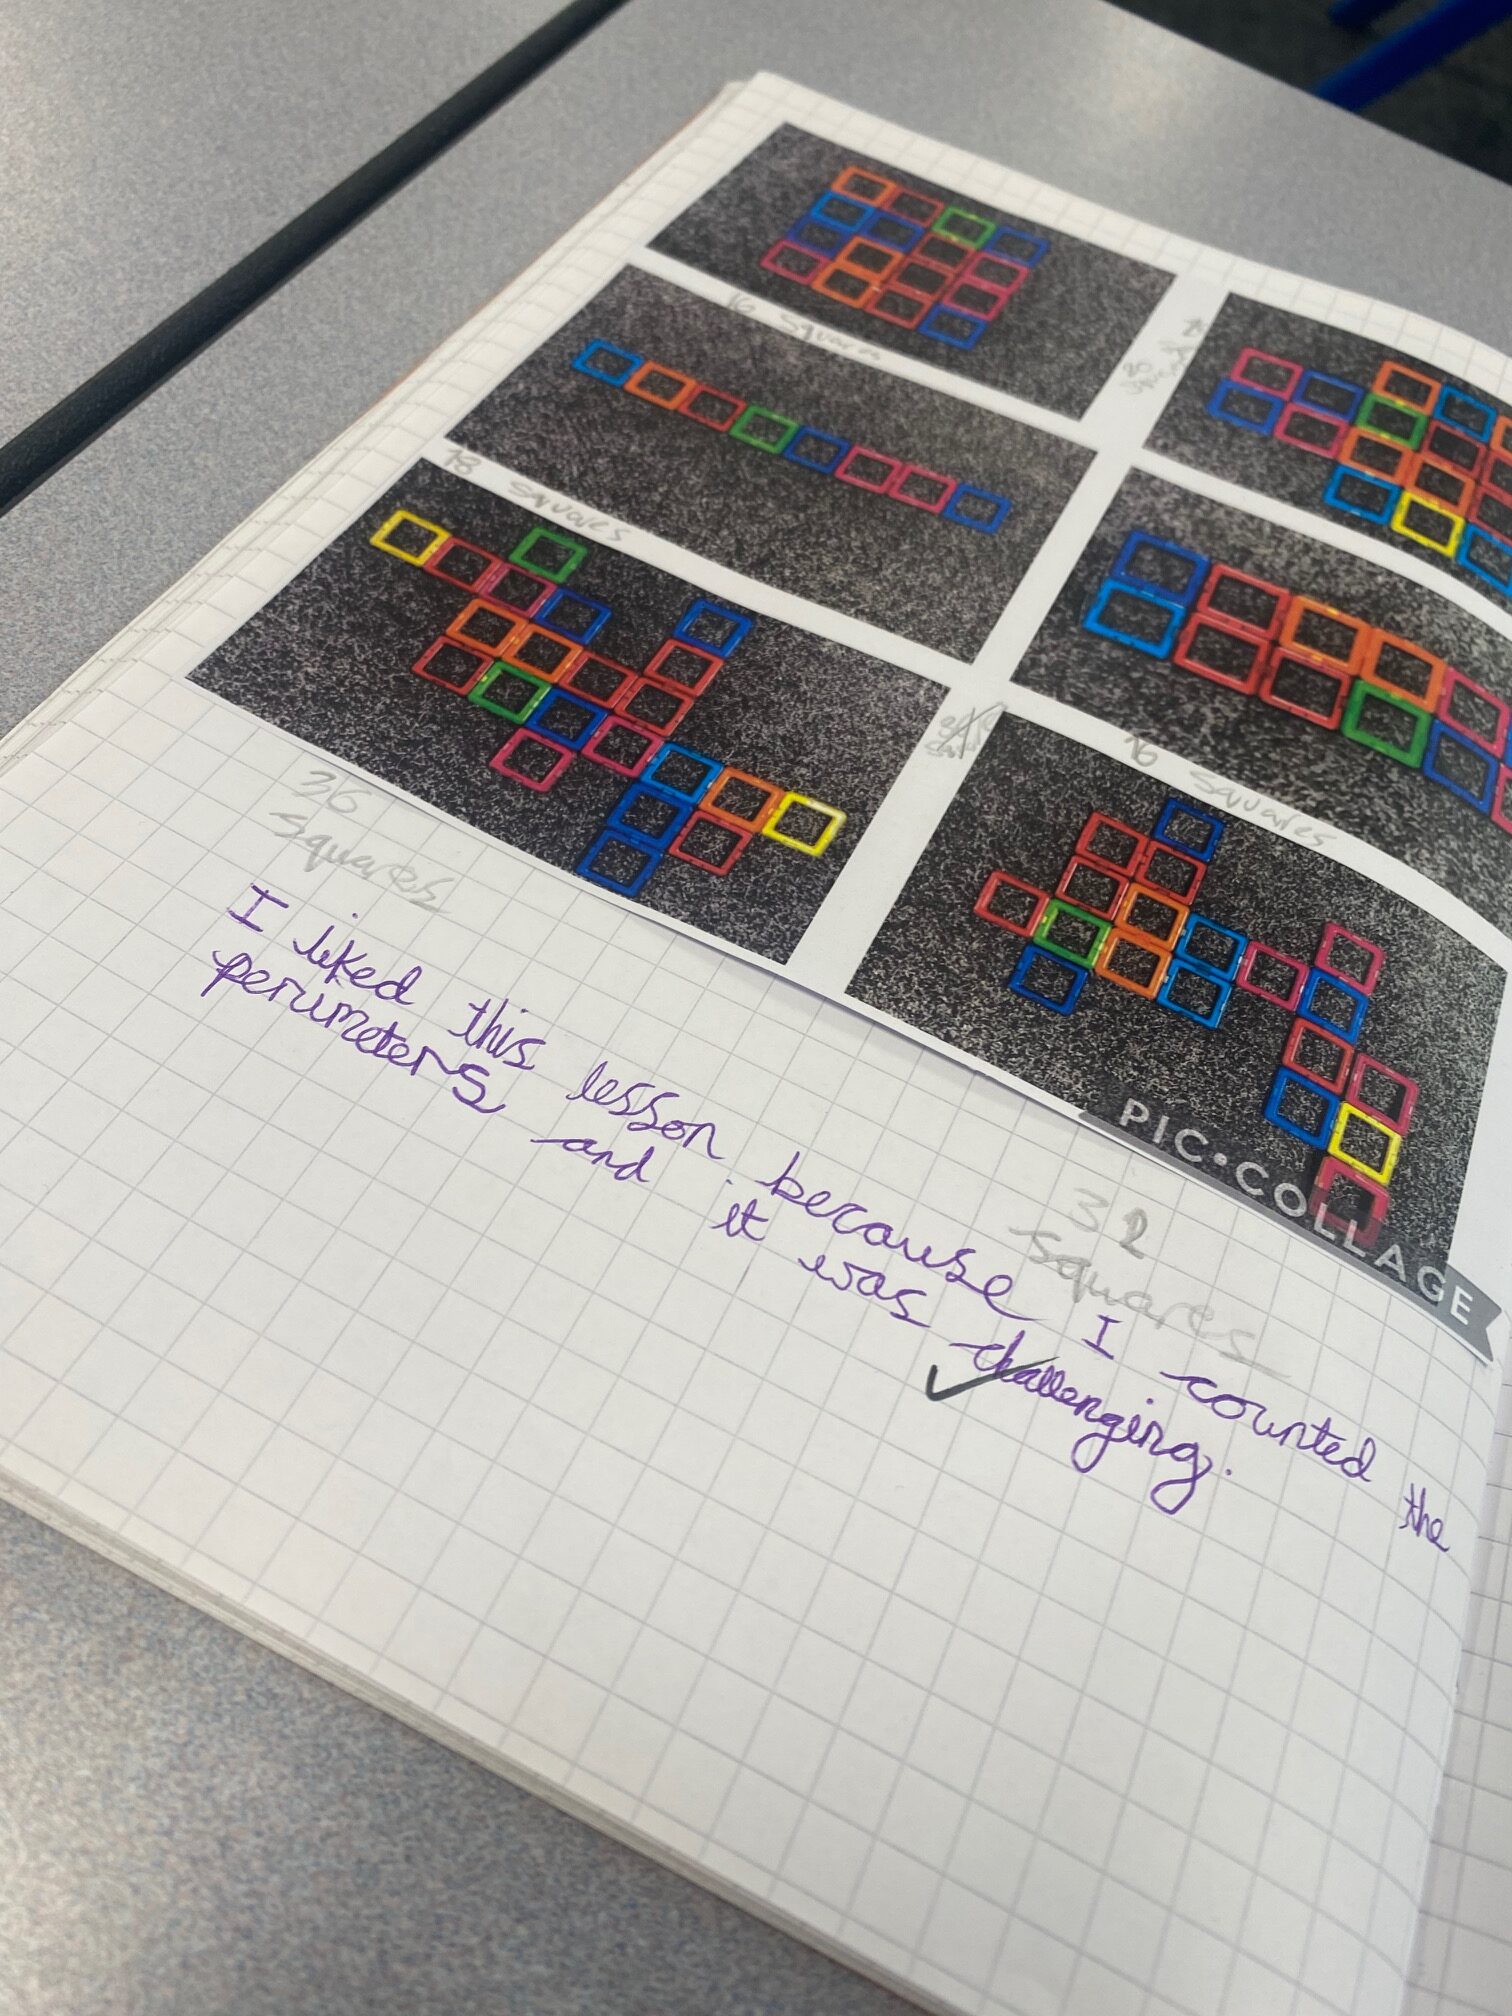 16 squares
18 squares
16 squares
36
squares
PIC•COLLAGE
32
squares
I liked this lesson because I counted the
perimeters and it was challenging.